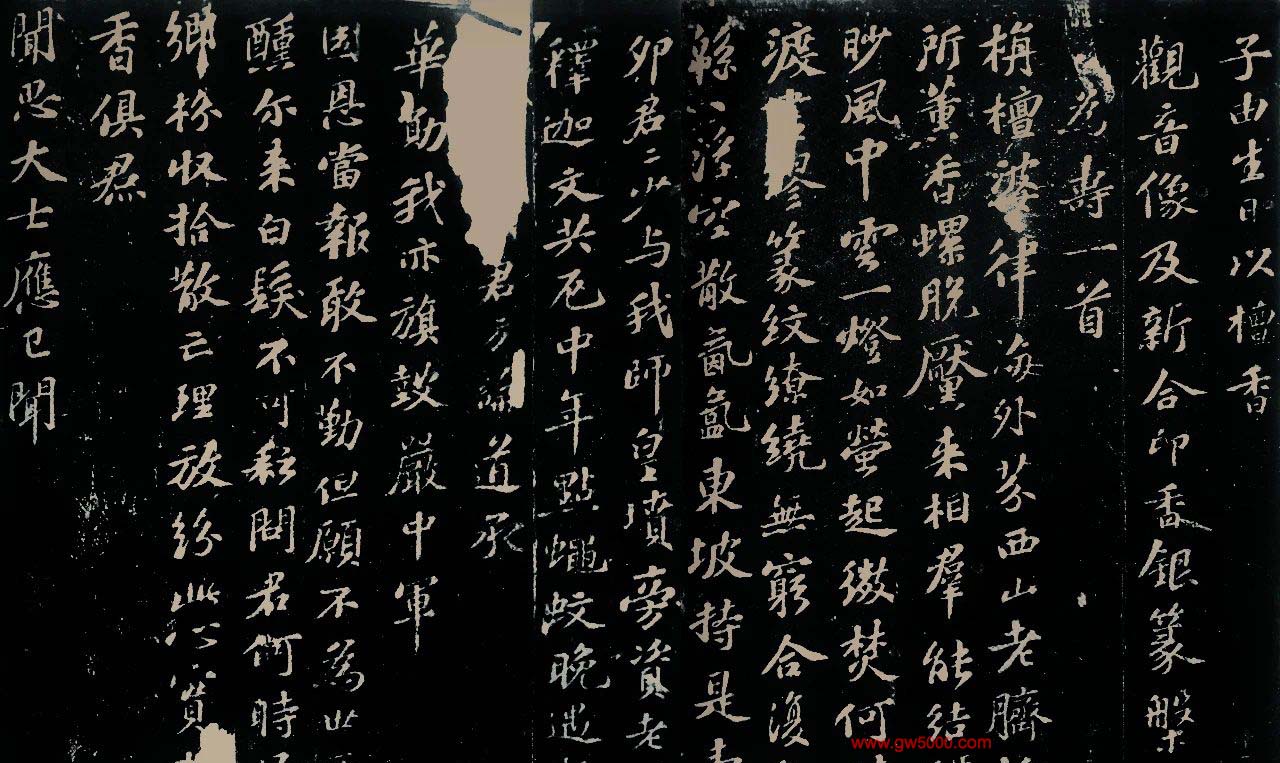 子由生日以檀香
觀音像及新合印香銀篆槃
為壽一首
栴檀婆律海外芬西山老臍
所薰香螺脫黶來相羣能結
眇風中雲一燈如螢起微焚何
渡 繆篆紋繚繞無窮合復
緜緜浮空散氤氳東坡持是
卯君君少与我師皇墳旁資老
釋迦文共厄中年點蠅蚊晚遇
君方論道承
華勛我亦旗鼓嚴中軍
国恩當報敢不勤但願不為世
醺尔来白髮不可耘問君何時
鄉枌収拾散亡理放紛此心實
香俱焄
聞思大士應已聞
www.gw5000.com